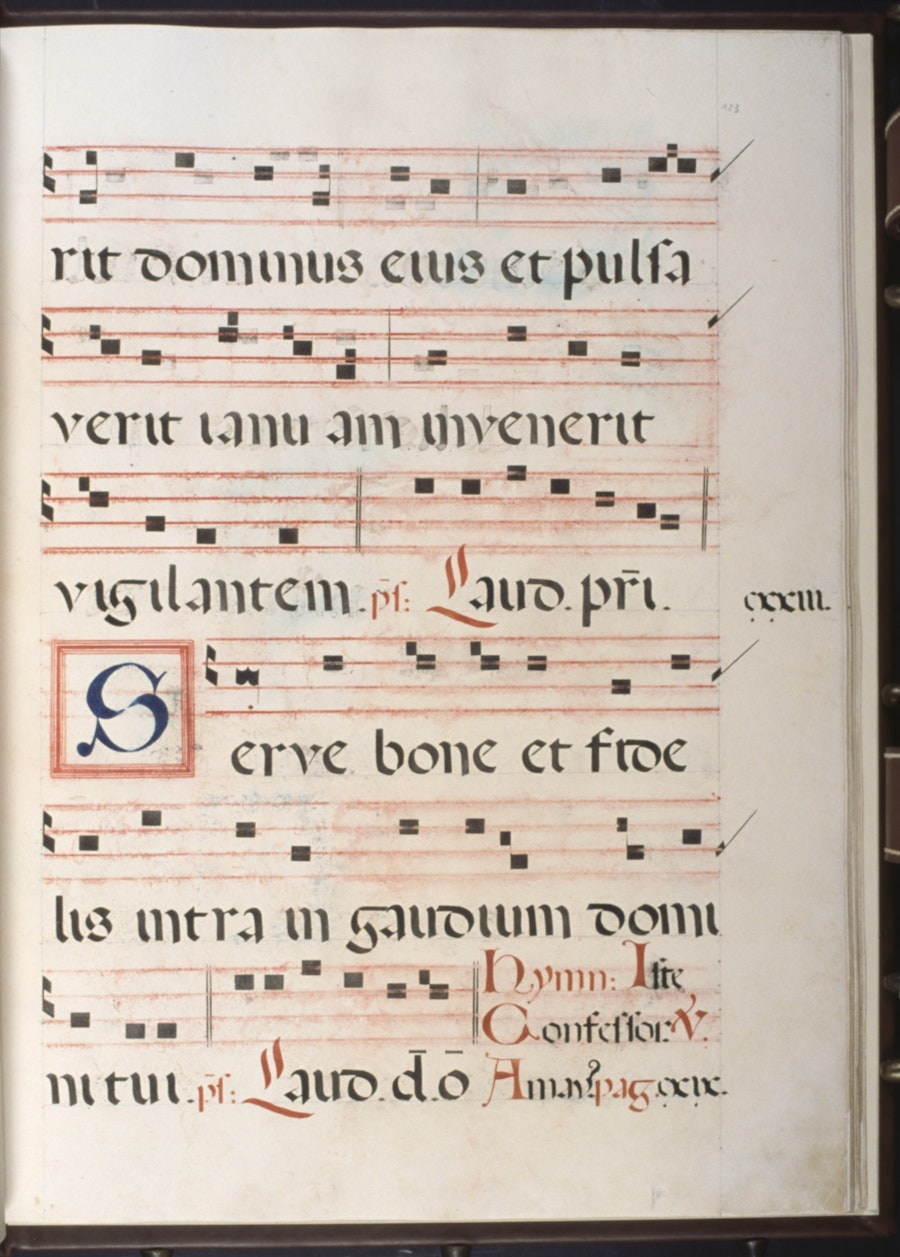 123
rit dominus eius et pulsa
verit ianu am invenerit
vigilantem. ps: Laud. pri.
cxxiii.
Serve bone et fide
lis intra in gaudium domi
Hymn: Iste
Confessor. V.
nitui. ps: Laud. d. o Amav. pag. cxix.